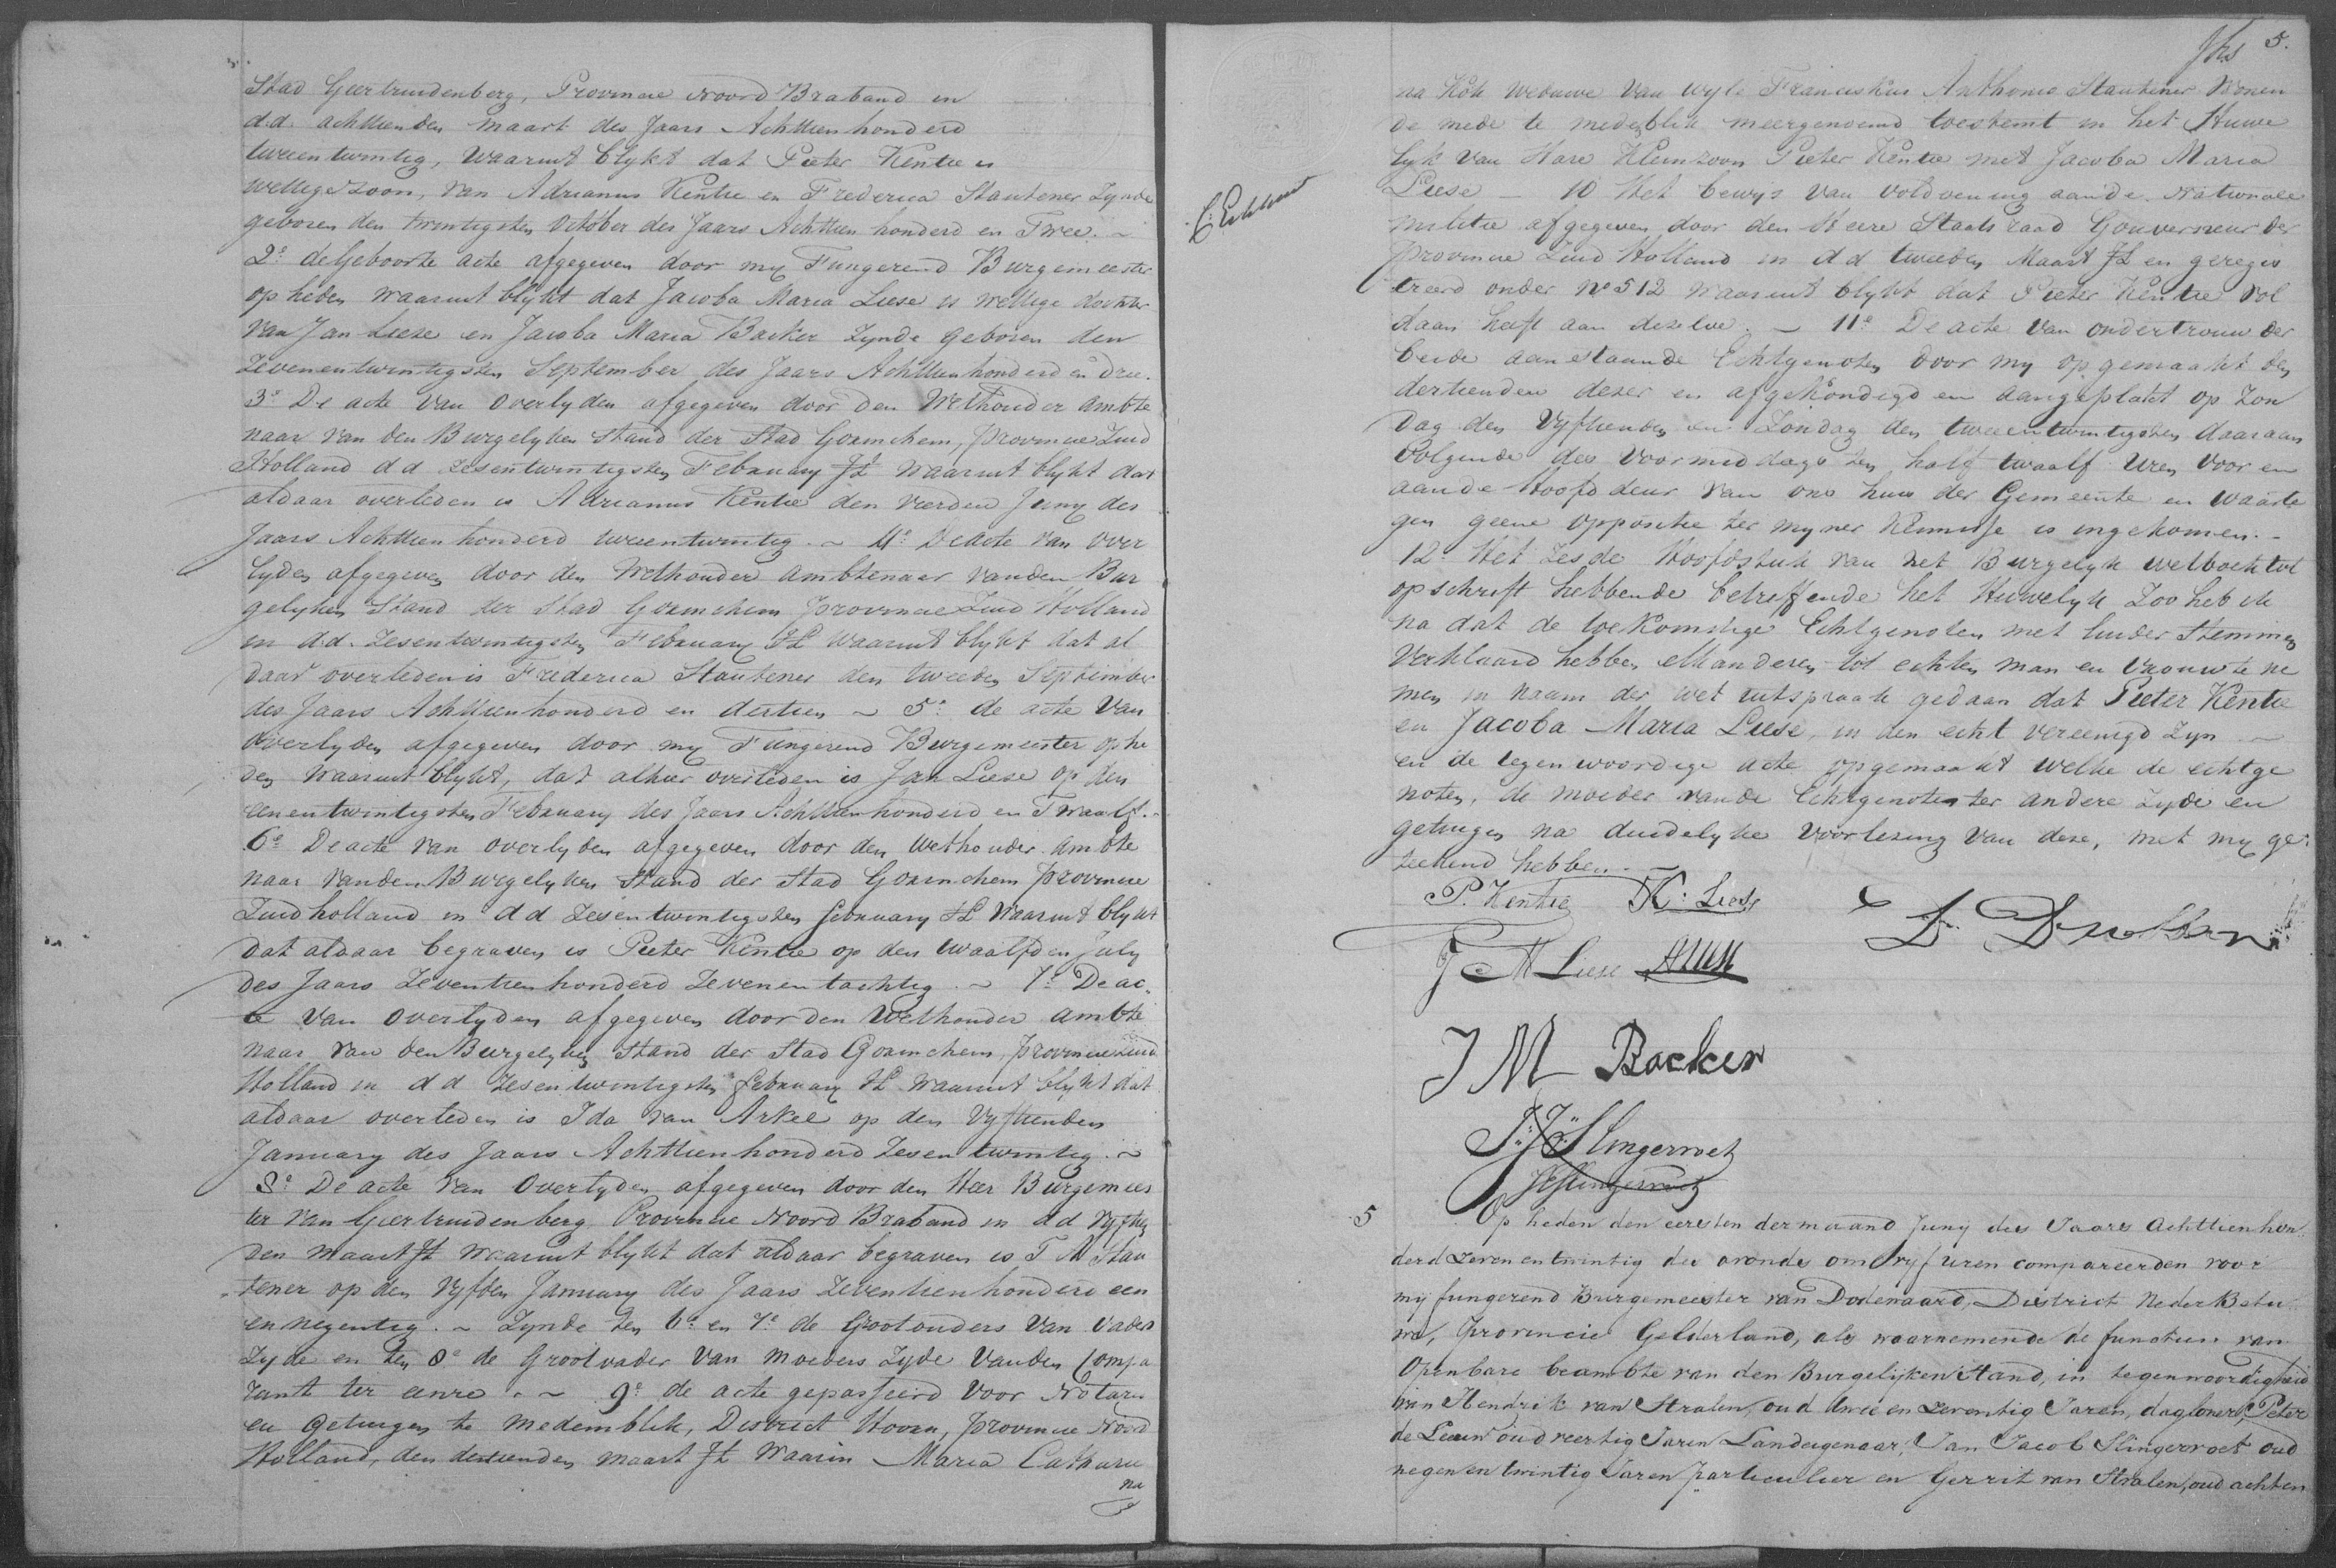 Stad Geertruidenberg, Provincie Noord Braband in
d.d. achttienden maart des Jaars Achttien honderd
tweentwintig, waaruit blykt dat Pieter Kentie is
wettige zoon, van Adrianus Kentie en Frederica Stautener zynde
geboren den twintigsten October des Jaars Achttien honderd en Twee. ~
2e de Geboorte acte afgegeven door my Fungerend Burgemeester
op heden waaruit blykt dat Jacoba Maria Liese is wettige dochter
van Jan Liese en Jacoba Maria Backer zynde geboren den
zevenentwintigsten September des Jaars Achttienhonderd en drie.
3e De acte van Overlyden afgegeven door den Wethouder ambte
naar van den Burgelyken Stand der Stad Gorinchem, provincie Zuid
Holland d d zesentwintigsten February Jl waaruit blykt dat
aldaar overleden is Adrianus Kentie den vierden Juny des
Jaars Achttien honderd tweentwintig. ~ 4e De acte van Over
lyden afgegeven door den Wethouder ambtenaar vanden Bur
gelyken Stand der Stad Gorinchem provincie Zuid Holland
in d.d. zesentwintigsten February Jl waaruit blykt dat al
daar overleden is Frederica Stautener den tweeden September
des Jaars Achttienhonderd en dertien ~ 5e de acte van
overlyden afgegeven door my Fungerend Burgemeester op he
den waaruit blykt, dat alhier overleden is Jan Liese op den
eenentwintigsten February des Jaars Achttienhonderd en Twaalf.
6e De acte van overlyden afgegeven door den Wethouder ambte
naar vanden Burgelyken Stand der Stad Gorinchem provincie
Zuidholland in d d zesentwintigsten february Jl waaruit blykt
dat aldaar begraven is Pieter Kentie op den twaalfden July
des Jaars Zeventien honderd Zevenentachtig. ~ 7e De ac
te van Overlyden afgegeven door den Wethouder ambte
naar van den Burgelyken Stand der Stad Gorinchem, provincie Zuid
Holland in d d zesentwintigsten february Jl waaruit blykt dat
aldaar overleden is Ida van Arkel op den vyftienden
January des Jaars Achttienhonderd Zesentwintig. ~
8e De acte van Overlyden afgegeven door den Heer Burgemees
ter van Geertruidenberg Provincie Noord Braband in d d vyftien
den maart Jl waaruit blykt dat aldaar begraven is F M Stau
tener op den vyfden January des Jaars Zeventienhonderd een
en negentig. ~ Zynde ten 6e en 7e de Grootouders van Vaders
Zyde en ten 8e de Grootvader van moeders Zyde vanden Compa
rante ter eenre. ~ 9e de acte gepasseerd voor Notaris
en Getuigen te Medemblik, District Hoorn, provincie Noord
Holland, den dertienden maart Jl Waarin Maria Catharie
na
fhs 5.
C. Eickhout
na Kok Weduwe van wyle Franciskus Anthonie Stautener Wonen
de mede te medeblik meergenoemd toestemt in het Huwe
lyk van Hare Kleinzoon Pieter Kentie met Jacoba Maria
Liese — 10 Het bewys van voldoening aan de Nationale
militie afgegeven door den Heere Staatsraad Gouverneur der
Provincie Zuid Holland in d d tweeden Maart Jl en geregis
treerd onder No 512 waaruit blykt dat Pieter Kentie vol
daan heeft aan dezelve. ~ 11e De acte van ondertrouw der
beide aanstaande Echtgenoten door my op gemaakt den
dertienden dezer en afgekondigd en aangeplakt op Zon
dag den Vyftienden en Zondag den tweeentwintigsten daaraan
volgende des voormiddags ten half twaalf uren voor en
aan de Hoofd deur van ons huis der Gemeente en waarte
gen geene oppositie ter myner Kennisse is ingekomen. -
12e Het zesde Hoofdstuk van het Burgelyk wetboek tot
opschrift hebbende betreffende het Huwelyk Zoo heb ik
na dat de toekomstige Echtgenoten met luider Stemmen
verklaard hebben elkanderen tot echten man en vrouw te ne
men in naam der wet uitspraak gedaan dat Pieter Kentie
en Jacoba Maria Liese, in den echt vereenigd zyn ~
en de tegenwoordige acte opgemaakt welke de echtge
noten, de moeder vande Echtgenote ter andere zyde en
getuigen na duidelyke voorlezing van deze, met my ge
teekend hebben. ~
P. Kentie K. Liese
J M Liese
J M Backer
J: J: Slingervoet
JHSlingervoet
5 Op heden den eersten der maand Juny des Jaars achttienhon
derd zevenentwintig des avonds om vijf uren compareerden voor
mij fungerend Burgemeester van Dodewaard, District Neder Betu
we, provincie Gelderland, als waarnemende de functien van
Openbare beambte van den Burgelijken Stand, in tegenwoordigheid
van Hendrik van Stralen, oud drie en zeventig Jaren, dagloner, Peter
de Leeuw oud veertig Jaren Landeigenaar, Jan Jacob Slingervoet oud
negenentwintig Jaren particulier en Gerrit van Stralen, oud acht en